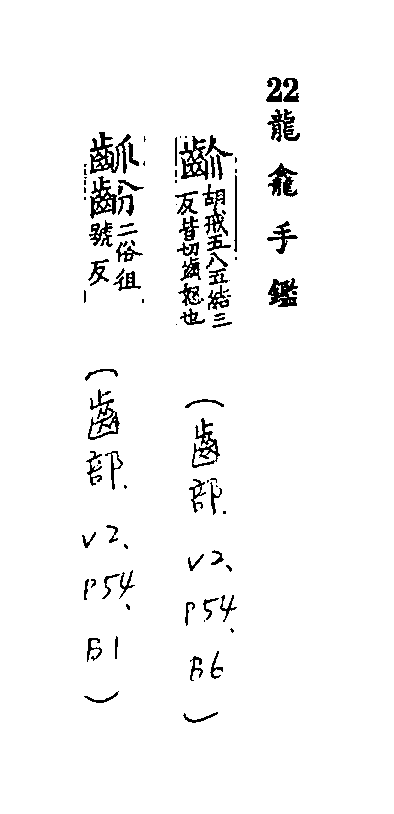 22龍龕手鑑
齘胡戒五八五結三反皆切齒怒也
(齒部. V2、P54、B6)
二俗徂號反
(齒部. V2、P54、B1)